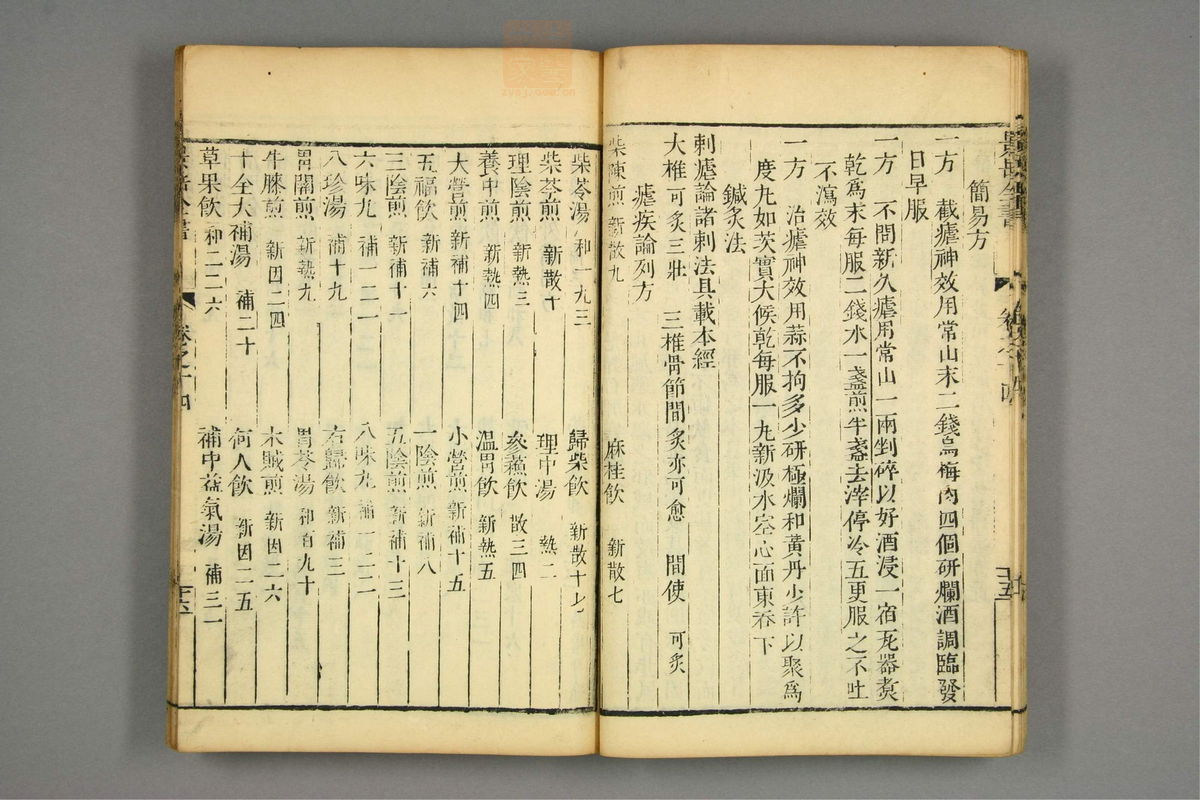 簡易方
一方 截瘧神效用常山末二錢烏梅肉四個研爛酒調臨發
日早服
一方 不問新久瘧用常山一兩剉碎以好酒浸一宿瓦器煑
乾爲末每服二錢水一盞煎半盞去滓停冷五更服之不吐
不瀉效
一方 治瘧神效用蒜不拘多少研極爛和黃丹少許以聚爲
度丸如芡實大候乾每服一丸新汲水空心面東吞下
鍼灸法
刺瘧論諸刺法具載本經
大椎 可炙三壯 三椎骨節間炙亦可愈 間使 可炙
瘧疾論列方
柴陳煎 新散九 麻桂飲 新散七
柴苓湯 和一九三 歸柴飲 新散十七
柴苓煎 新散十 理中湯 熱二
理陰煎 新熱三 姜蘇飲 散三四
養中煎 新熱四 溫胃飲 新熱五
大營煎 新補十四 小營煎 新補十五
五福飲 新補六 一陰煎 新補八
三陰煎 新補十一 五陰煎 新補十三
六味丸 補一二一 八味丸 補一二二
八珍湯 補十九 右歸飲 新補三
胃關煎 新熱九 胃苓湯 和百九十
牛膝煎 新因二四 木賊煎 新因二六
十全大補湯 補二十 何人飲 新因二五
草果飲 和二二六 補中益氣湯 補三一
景岳全書
卷之十四
十五
卷之十四
十六
zysj.com.cn